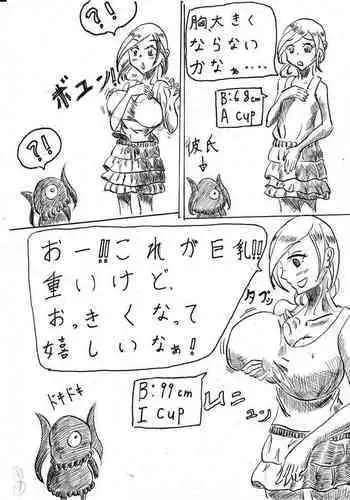 胸大きく
ならない
かなぁ‥‥
B:68cm
A cup
彼氏
?!
ボユン!!
?!
おー!!これが巨乳!!
重いけど、
おっきくなって
嬉しいなぁ!
タプッ
B:99cm
I cup
ムニュン
ドキドキ